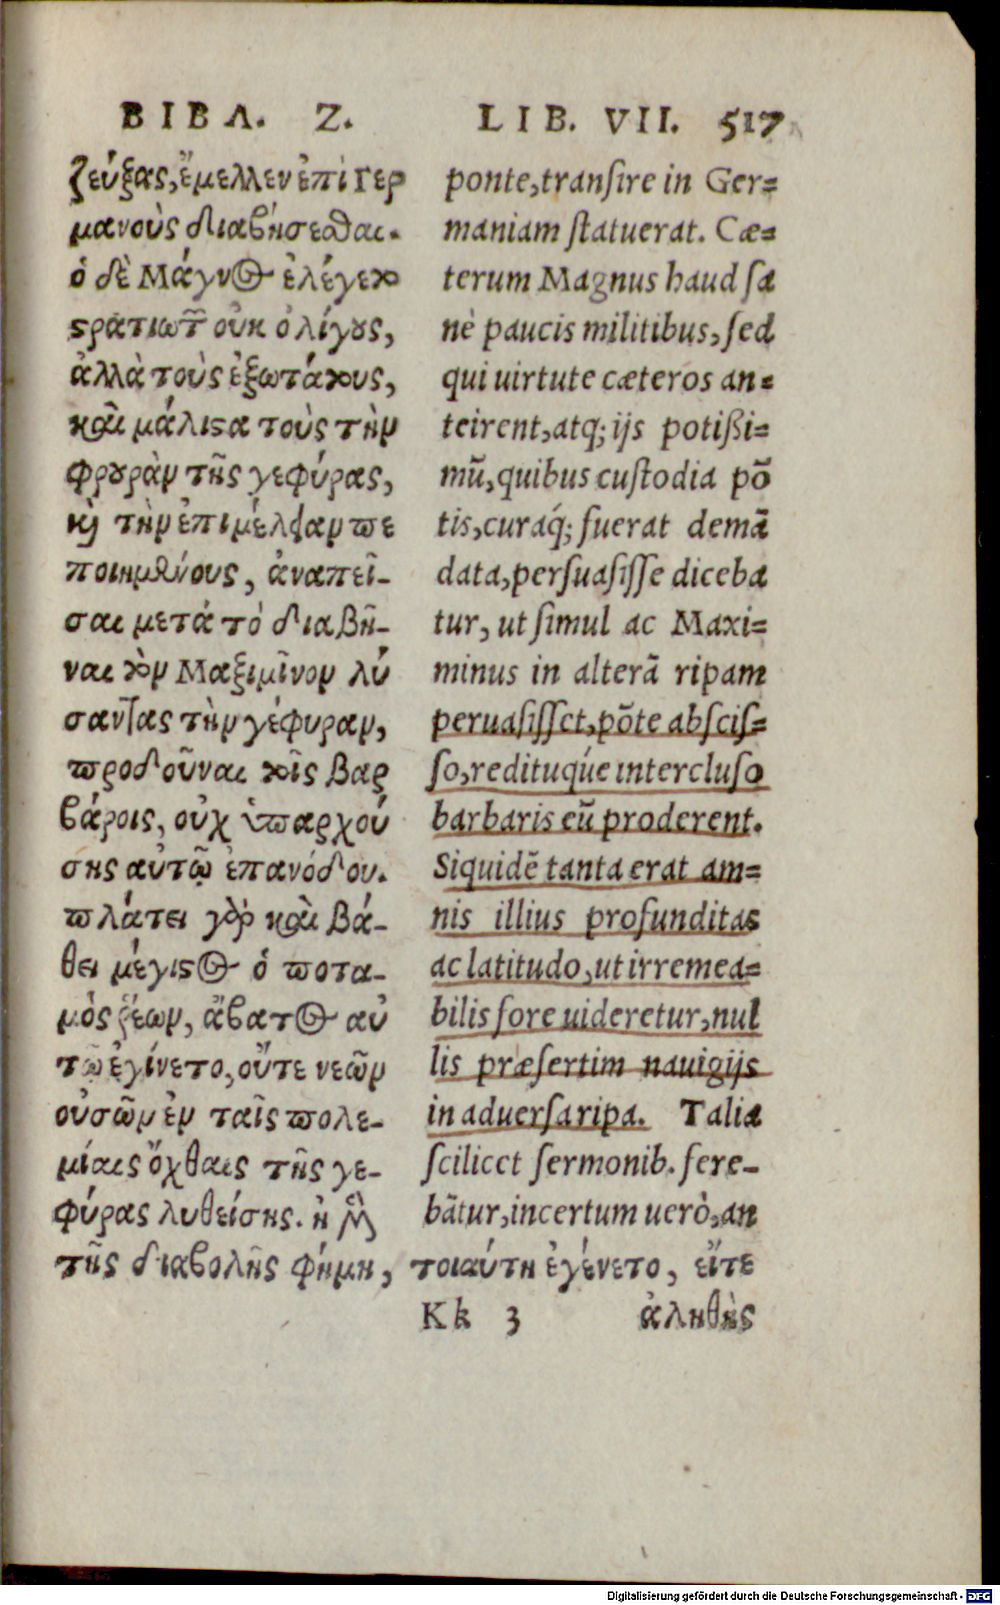 ΒΙΒΛ. Ζ.
ζεύξας, ἔμελλεν ἐπὶ Γερ
μανοὺς διαβήσεσθαι.
ὁ δὲ Μάγνος ἐλέγετο
στρατιωτῶν οὐκ ὀλίγους,
ἀλλὰ τοὺς ἐξωτάτους,
καὶ μάλιστα τοὺς τὴν
φρουρὰν τῆς γεφύρας,
καὶ τὴν ἐπιμέλειαν πε
ποιημένους, ἀναπεῖ-
σαι μετὰ τὸ διαβῆ-
ναι τὸν Μαξιμῖνον λύ
σαντας τὴν γέφυραν,
προδοῦναι τοῖς βαρ
βάροις, οὐχ ὑπαρχού
σης αὐτῷ ἐπανόδου.
πλάτει γὰρ καὶ βά-
θει μέγιστος ὁ ποτα-
μὸς ῥέων, ἄβατος αὐ
τῷ ἐγίνετο, οὔτε νεῶν
οὐσῶν ἐν ταῖς πολε-
μίαις ὄχθαις τῆς γε-
φύρας λυθείσης. ἡ μὲν
τῆς διαβολῆς φήμη, τοιαύτη ἐγένετο, εἴτε
LIB. VII. 517
ponte, tranſire in Ger=
maniam ſtatuerat. Cæ=
terum Magnus haud ſa
nè paucis militibus, ſed
qui uirtute cæteros an=
teirent, atq; ijs potißi=
mũ, quibus cuſtodia põ
tis, curaq́; fuerat demã
data, perſuaſiſſe diceba
tur, ut ſimul ac Maxi=
minus in alterã ripam
peruaſiſſet, põte abſciſ=
ſo, redituq́ue intercluſo
barbaris eũ proderent.
Siquidẽ tanta erat am=
nis illius profunditas
ac latitudo, ut irremea=
bilis fore uideretur, nul
lis præſertim nauigijs
in aduerſa ripa. Talia
ſcilicet ſermonib. fere-
bãtur, incertum uerò, an
Kk 3 ἀληθὴς
Digitalisierung gefördert durch die Deutsche Forschungsgemeinschaft - DFG